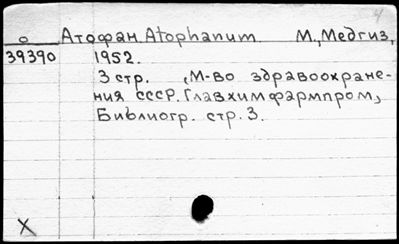 4
о Атофан. Atophanum. М., Медгиз,
39390 1952.
3 стр. (М-во здравоохране-
ния СССР. Главхимфармпром)
Библиогр. стр. 3.
X